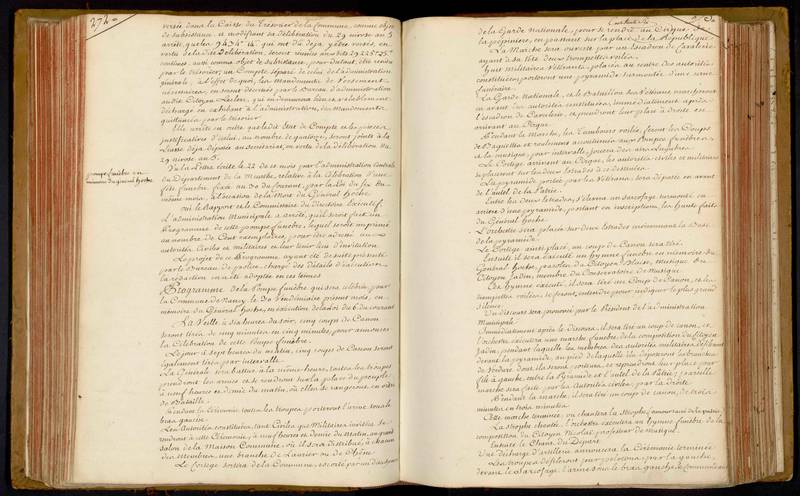 272
versée dans la Caisse du Trésorier de la Commune, comme objet
de subsistance, et modifiant sa délibération du 29 nivose an 5
arrête que les
vertu de la dite Délibération, seront réunis aux dits
continues, aussi comme objet de subsistance, pour du tout, être rendu
par le trésorier, un Compte séparé de celui de l'administration
générale, à l'effet de quoi, les Mandements de Versement
nécessaires, en seront décernés par le Bureau d'administration
audit Citoyen Leclerc, qui en demeurera bien et valablement
déchargé en exhibant à l'administration, des Mandements
quittancés par le trésorier
Elle arrête en outre que ledit Etat de Compte et les pièces
justificatives d'icelui, au nombre de quatorze, seront joints à la
Liasse déjà déposée au secrétariat, en vertu de la délibération du
29 nivose an 5.
pompe funèbre en
mémoire du général Hoche
Vu la Lettre écrite le 22 de ce mois par l'administration Centrale
du Département de la Meurthe, relative à la Célébration d'une
fête funèbre fixée au 30 du Courant, par la Loi du six du
même mois, à l'occasion de la Mort du Général Hoche
Oui le Rapport et le Commissaire du Directoire Exécutif.
L'administration Municipale a arrêté, qu'il seroit fait un
Programme de cette pompe funèbre, lequel seroit imprimé
au nombre de Cent exemplaires, pour être adressé aux
autorités Civiles et militaires et leur tenir lieu d'invitation
Le projet de ce Programme ayant été de suite présenté
par le Bureau de police, chargé des détails d'exécution
la rédaction en a été adoptée en ces termes
Programme de la Pompe funèbre qui sera célébrée, par
la Commune de Nancy, le 30 Vendémiaire présent mois, en
mémoire du Général Hoche, en exécution de la loi du 6 du courant
La Veille à six heures du soir, cinq coups de Canon
seront tirés de cinq minutes, en cinq minutes, pour annoncer
la Célébration de cette Pompe funèbre.
Le jour à sept heures du matin, cinq coups de Canon seront
également tirés par intervalle
La Générale sera battue à la même heure, toutes les troupes
prendront les armes et se rendront sur la place du peuple
à neuf heures et demie du matin, où elles se rangeront en ordre
de Bataille.
Pendant la Cérémonie toutes les troupes porteront l'arme sous le
bras gauche
Les Autorités constituées, tant Civiles que Militaires invitées se
rendront à cette Cérémonie, à neuf heures et demie du Matin, au grand
salon de la Maison Commune, où il sera distribué, à chacun
des Membres, une branche de Laurier ou de Chêne
Le Cortège sortira de la Commune, escorté par un
de la Garde Nationale, pour se rendre au Cirque de
la pépinière, en passant sur la place de la République
La Marche sera ouverte par un Escadron de Cavalerie
ayant à sa tête deux trompettes voilés.
Huit militaires Vétérans, placés au centre des autorités
constituées, porteront une pyramide surmontée d'une urne
funéraire.
La Garde Nationale, et le Bataillon des Vétérans marcheront
en avant des autorités constituées, immédiatement après
l'escadron de Cavalerie, et prendront leur place à droite en
arrivant au Cirque
Pendant la Marche, les Tambours voilés, feront les Coups
de Baguettes et roulements accoutumés aux Pompes funèbres
et la musique, par intervalle, jouera des airs Lugubres
Le Cortège arrivant au Cirque, les autorités civiles et militaires
se placeront sur les deux Estrades à ce destinées
La pyramide portée par les Vétérans, sera déposée en avant
de l'autel de la Patrie.
Entre les deux Estrades, s'élèvera un sarcophage surmonté en
arrière d'une pyramide, portant en inscription, les hauts faits
du Général Hoche.
L'orchestre sera placé sur deux Estrades environnant la Base
de la pyramide.
Le Cortège ainsi placé, un coup de Canon sera tiré.
Ensuite il sera exécuté un hymne funèbre en mémoire du
Général Hoche, paroles du Citoyen Blaise, Musique du
Citoyen Jadin, membre du Conservatoire de Musique.
Cet hymne exécuté, il sera tiré un Coup de Canon, et les
trompettes voilées se feront entendre pour indiquer le plus grand
silence.
Un discours sera prononcé par le Président de l'administration
Municipale
Immédiatement après le discours, il sera tiré un coup de canon, et
l'orchestre exécutera une marche funèbre, de la composition du Citoyen
Jadin, pendant laquelle les membres des autorités militaires défileront
devant la pyramide, au pied de laquelle ils déposeront les branches
de verdure dont ils seront porteurs, et reprendront leur place par
file à gauche, entre la Pyramide et l'autel de la Patrie; pareille
marche sera faite par les Autorités civiles, par la Droite
Pendant la marche, il sera tiré un coup de canon, de trois
minutes en trois minutes
Cette marche terminée, on chantera la strophe, amour sacré de la patrie.
La strophe chantée, l'orchestre exécutera un hymne funèbre de la
composition du Citoyen Nicolas, professeur de Musique.
Ensuite le Chant du Départ
Une décharge d'artillerie annoncera la Cérémonie terminée
Les troupes défileront par pelotons, par la gauche,
devant le sarcophage, l'arme sous le bras gauche